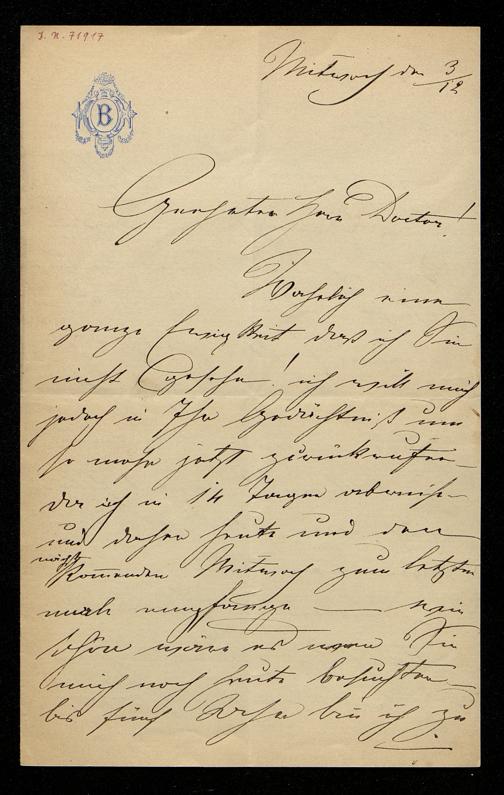 I.N. 71917
Mittwoch den 3/12
B
Geehrter Herr Doctor!
Wahrlich eine
ganze Ewigkeit daß ich Sie
nicht gesehen! ich will mich
jedoch in Ihr Gedächtniß um
so mehr jetzt zurückrufen
da ich in 14 Tagen abreise
und daher heute und den
nächst
kommenden Mittwoch zum letzten
mal empfange — wie
schön wäre es wenn Sie
mich noch heute besuchten
bis fünf Uhr bin ich zu